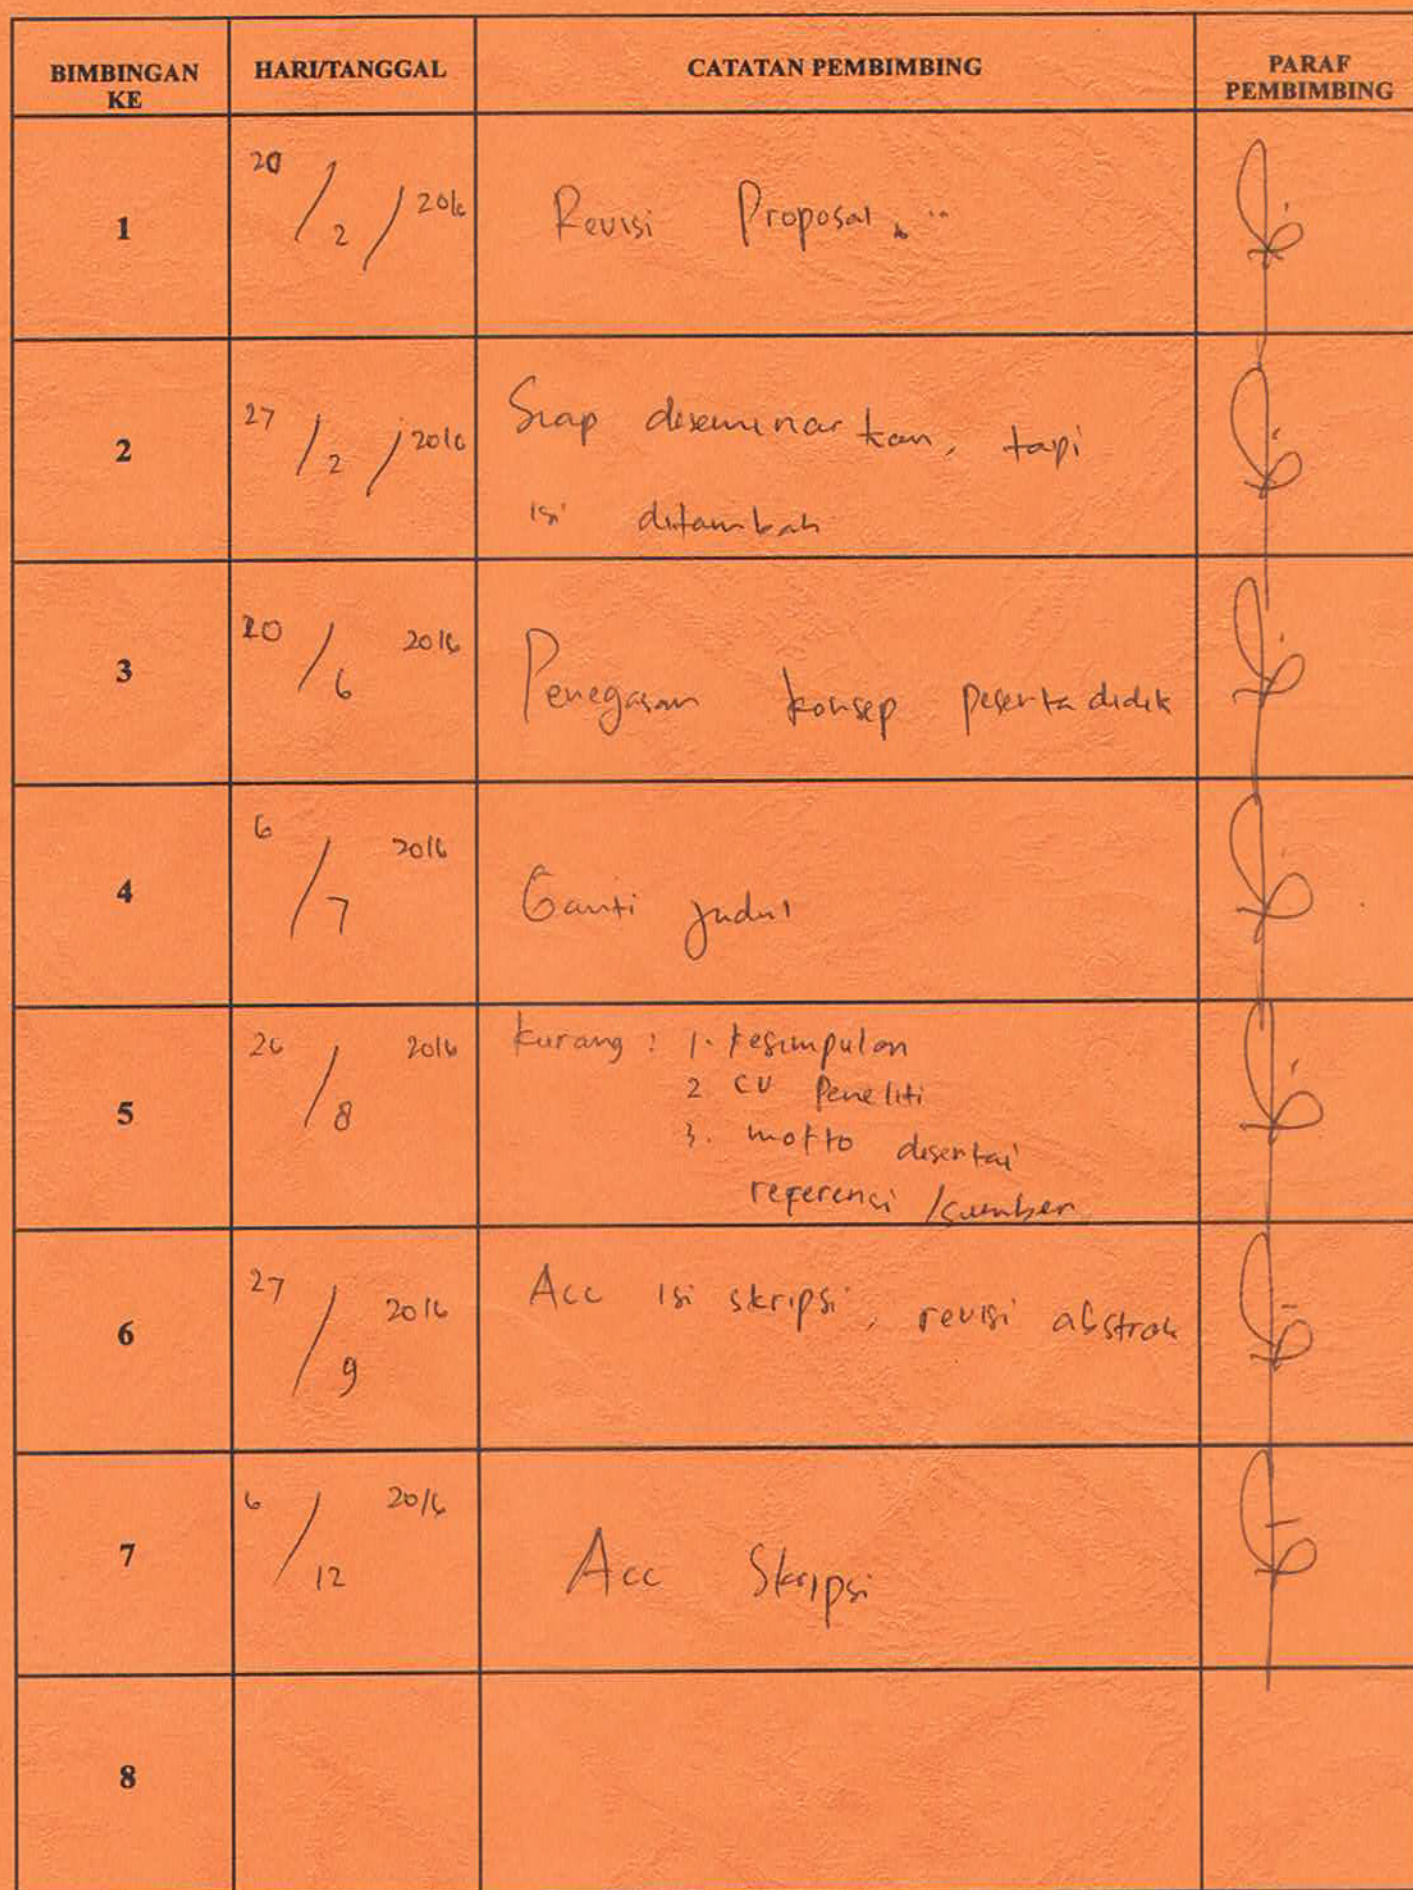 BIMBINGAN KE HARI/TANGGAL CATATAN PEMBIMBING PARAF PEMBIMBING
1 20/2/2016 Revisi Proposal
2 27/2/2016 Siap diseminarkan, tapi
isi ditambah
3 20/6 2016 Penegasan konsep peserta didik
4 6/7 2016 Ganti judul
5 26/8 2016 Kurang : 1. Kesimpulan
2 CV Peneliti
3. motto disertai
referensi /sumber
6 27/9 2016 Acc isi skripsi, revisi abstrak
7 6/12 2016 Acc Skripsi
8